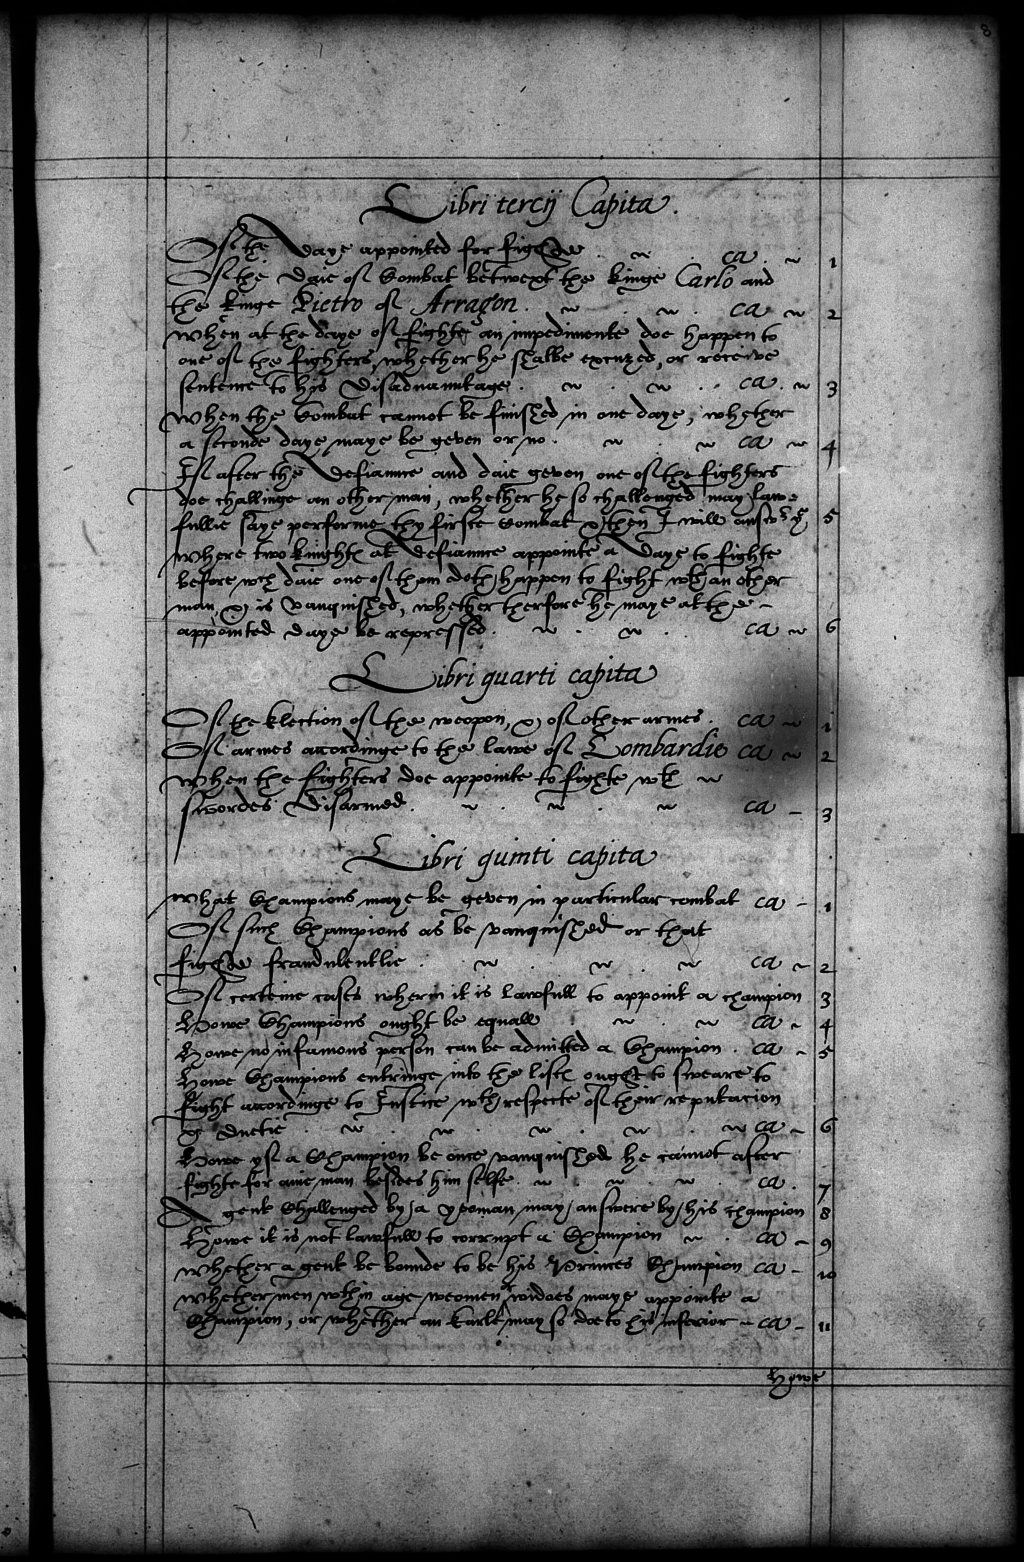 8
Libri tercij Capita.
Of the Daye appointed for fighte ca. 1
Of the Daie of Combat betwext the kinge Carlo and
the kinge Pietro of Arragon. ca 2
When at the daye of fighte an impedimente doe happen to
one of the fighters, whether he shalbe excused, or receive
sentence to his Disadvauntage. ca. 3
When the Combat cannot be finished in one daye, whether
a seconde daye maye be geven or no. ca 4
If after the Defiaunce and daie geven one of the fighters
doe challinge an other man, whether he so challenged may law=
fullie saye performe thy firste Combat & then I will answer 5
Where two knights at Defiaunce appointe a Daye to fighte
before wch daie one of them doth happen to fight wth an other
man, & is vanquished, whether therfore he maye at the
appointed Daye be repressed. ca 6
Libri quarti capita
Of the Election of the weopon, & of other armes. ca 1
Of armes accordinge to the lawe of Lombardie ca 2
When the fighters doe appointe to fighte wth
swordes Disarmed. ca 3
Libri quinti capita
What Champions maye be geven in particular combat ca 1
Of such Champions as be vanquished or that
fighte fraudulentlie. ca 2
Of certeine cases wherin it is lawfull to appoint a champion 3
Howe Champions ought be equall ca 4
Howe no infamous person can be admitted a Champion. ca 5
Howe Champions entringe into the lists ought to sweare to
fight accordinge to Justice, wth respecte of their reputacion
& duetie. ca 6
Howe yf a Champion be once vanquished he cannot after
fighte for anie man besides him selfe. ca. 7
A gent Challenged by a yeoman may answere by his champion 8
Howe it is not lawfull to corrupt a Champion ca 9
Whether a gent be bounde to be his Princes Champion ca 10
Whether men wthin age, weomen or widoes maye appointe a
Champion, or whether an Earle may so doe to his inferior ca 11
Howe